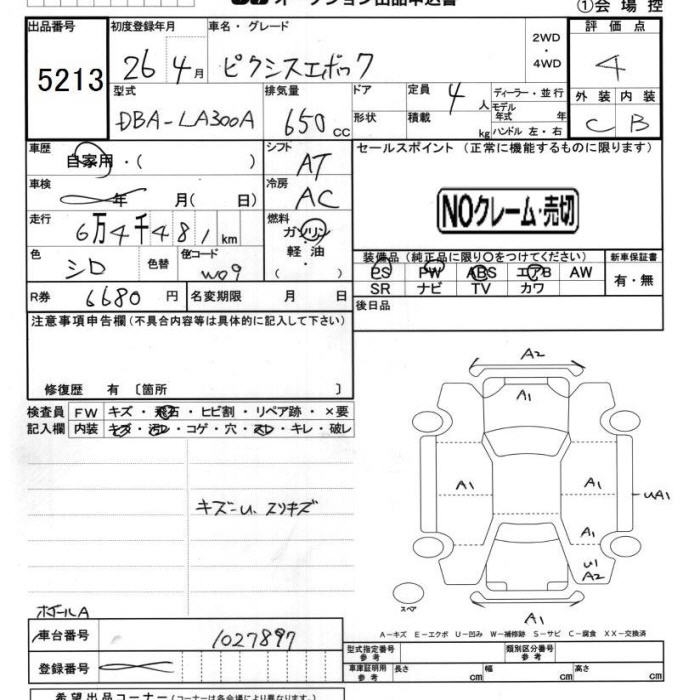 オークション出品申込書
①会場控
出品番号 初度登録年月 車名・グレード 2WD・4WD 評価点
5213 26 4月 ピクシスエポック 4
型式 排気量 ドア 定員 4人 ディーラー・並行 外装 内装
DBA-LA300A 650cc 形状 積載 kg モデル年式 年 ハンドル 左・右 C B
車歴 自家用・( ) シフト AT セールスポイント (正常に機能するものに限ります)
車検 年 月( 日) 冷房 AC
NOクレーム・売切
走行 6万4千481km 燃料 ガソリン・軽油・( )
色 シロ 色替 色コード W09
装備品 (純正品に限り○をつけてください) 新車保証書
PS PW ABS エアB AW 有・無
SR ナビ TV カワ
R券 6680円 名変期限 月 日 後日品
注意事項申告欄 (不具合内容等は具体的に記入して下さい)
修復歴 有 〔箇所 〕
検査員記入欄 FW キズ・飛石・ヒビ割・リペア跡・×要
内装 キズ・汚レ・コゲ・穴・スレ・キレ・破レ
キズーU、スリキズ
A2
A1
A1 A1 UA1
A1
U1
A2
A1
スペア
ホイールA
A-キズ E-エクボ U-凹み W-補修跡 S-サビ C-腐食 XX-交換済
車台番号 1027897
型式指定番号参考 類別区分番号参考
登録番号
車庫証明用参考 長さ cm 幅 cm 高さ cm
希望出品コーナー (コーナー名は各会場により異なります。)